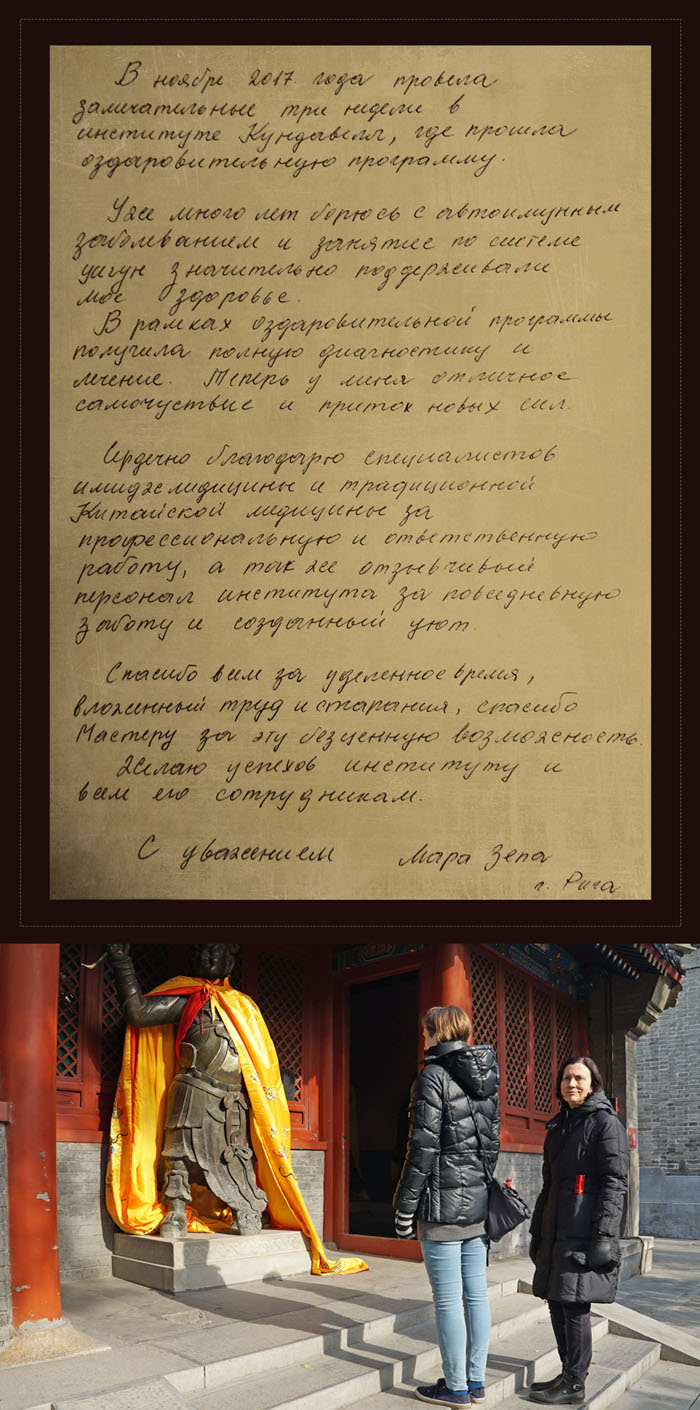 В ноябре 2017 года провела
замечательные три недели в
институте Кундавелл, где прошла
оздаровительную программу.
Уже много лет борюсь с автоимунным
заболеванием и занятие по системе
цигун значительно поддерживали
мое здоровье.
В рамках оздаровительной программы
получила полную диагностику и
лечение. Теперь у меня отличное
самочуствие и приток новых сил.
Сердечно благодарю специалистов
имиджмедицины и традиционной
Китайской медицины за
профессиональную и ответственную
работу, а так же отзывчивый
персонал института за повседневную
заботу и созданный уют.
Спасибо всем за уделенное время,
вложенный труд и старания, спасибо
Мастеру за эту безценную возможность.
Желаю успехов институту и
всем его сотрудникам.
С уважением Мара Зепа
г. Рига